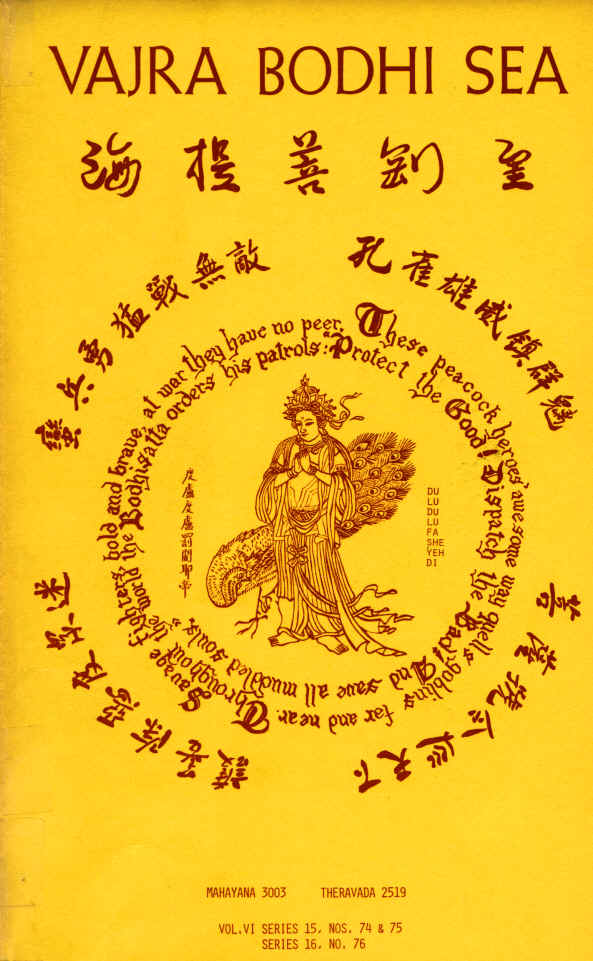 VAJRA BODHI SEA
金剛菩提海
孔雀雄威鎮群魅
蠻兵勇猛戰無敵
菩薩號令巡天下
護善除惡度群迷
These peacock heroes' awesome way quells goblins far and near. Savage fighters bold and brave, at war they have no peer.
Throughout the world the Bodhisatta orders his patrols: "Protect the Good! Dispatch the Bad! And save all muddled souls."
度盧度盧罰闍耶帝
DU
LU
DU
LU
FA
SHE
YEH
DI
MAHAYANA 3003 THERAVADA 2519
VOL.VI SERIES 15, NOS. 74 & 75
SERIES 16, NO. 76